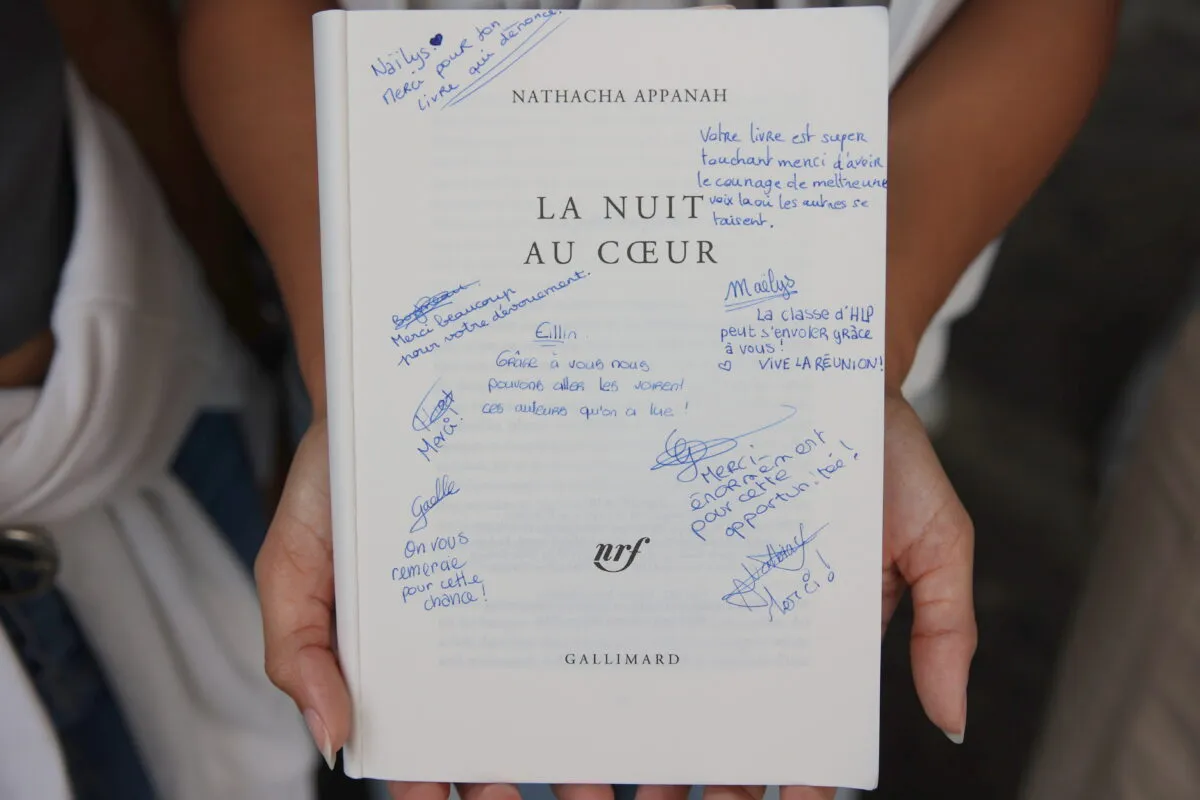 Naïlys
Merci pour ton
livre qui dénonce.
NATHACHA APPANAH
Votre livre est super
touchant merci d'avoir
le courage de mettre une
voix la où les autres se
taisent.
LA NUIT
AU CŒUR
Merci beaucoup
pour votre dévouement.
Eillin
Grâce à vous nous
pouvons aller les voirent
ces auteurs qu'on a lue !
Maëlys
La classe d'HLP
peut s'envoler grâce
à vous !
VIVE LA RÉUNION !
Merci !
Merci
énormément
pour cette
opportunitée !
Gaelle
On vous
remercie
pour cette
chance !
nrf
Merci !
GALLIMARD